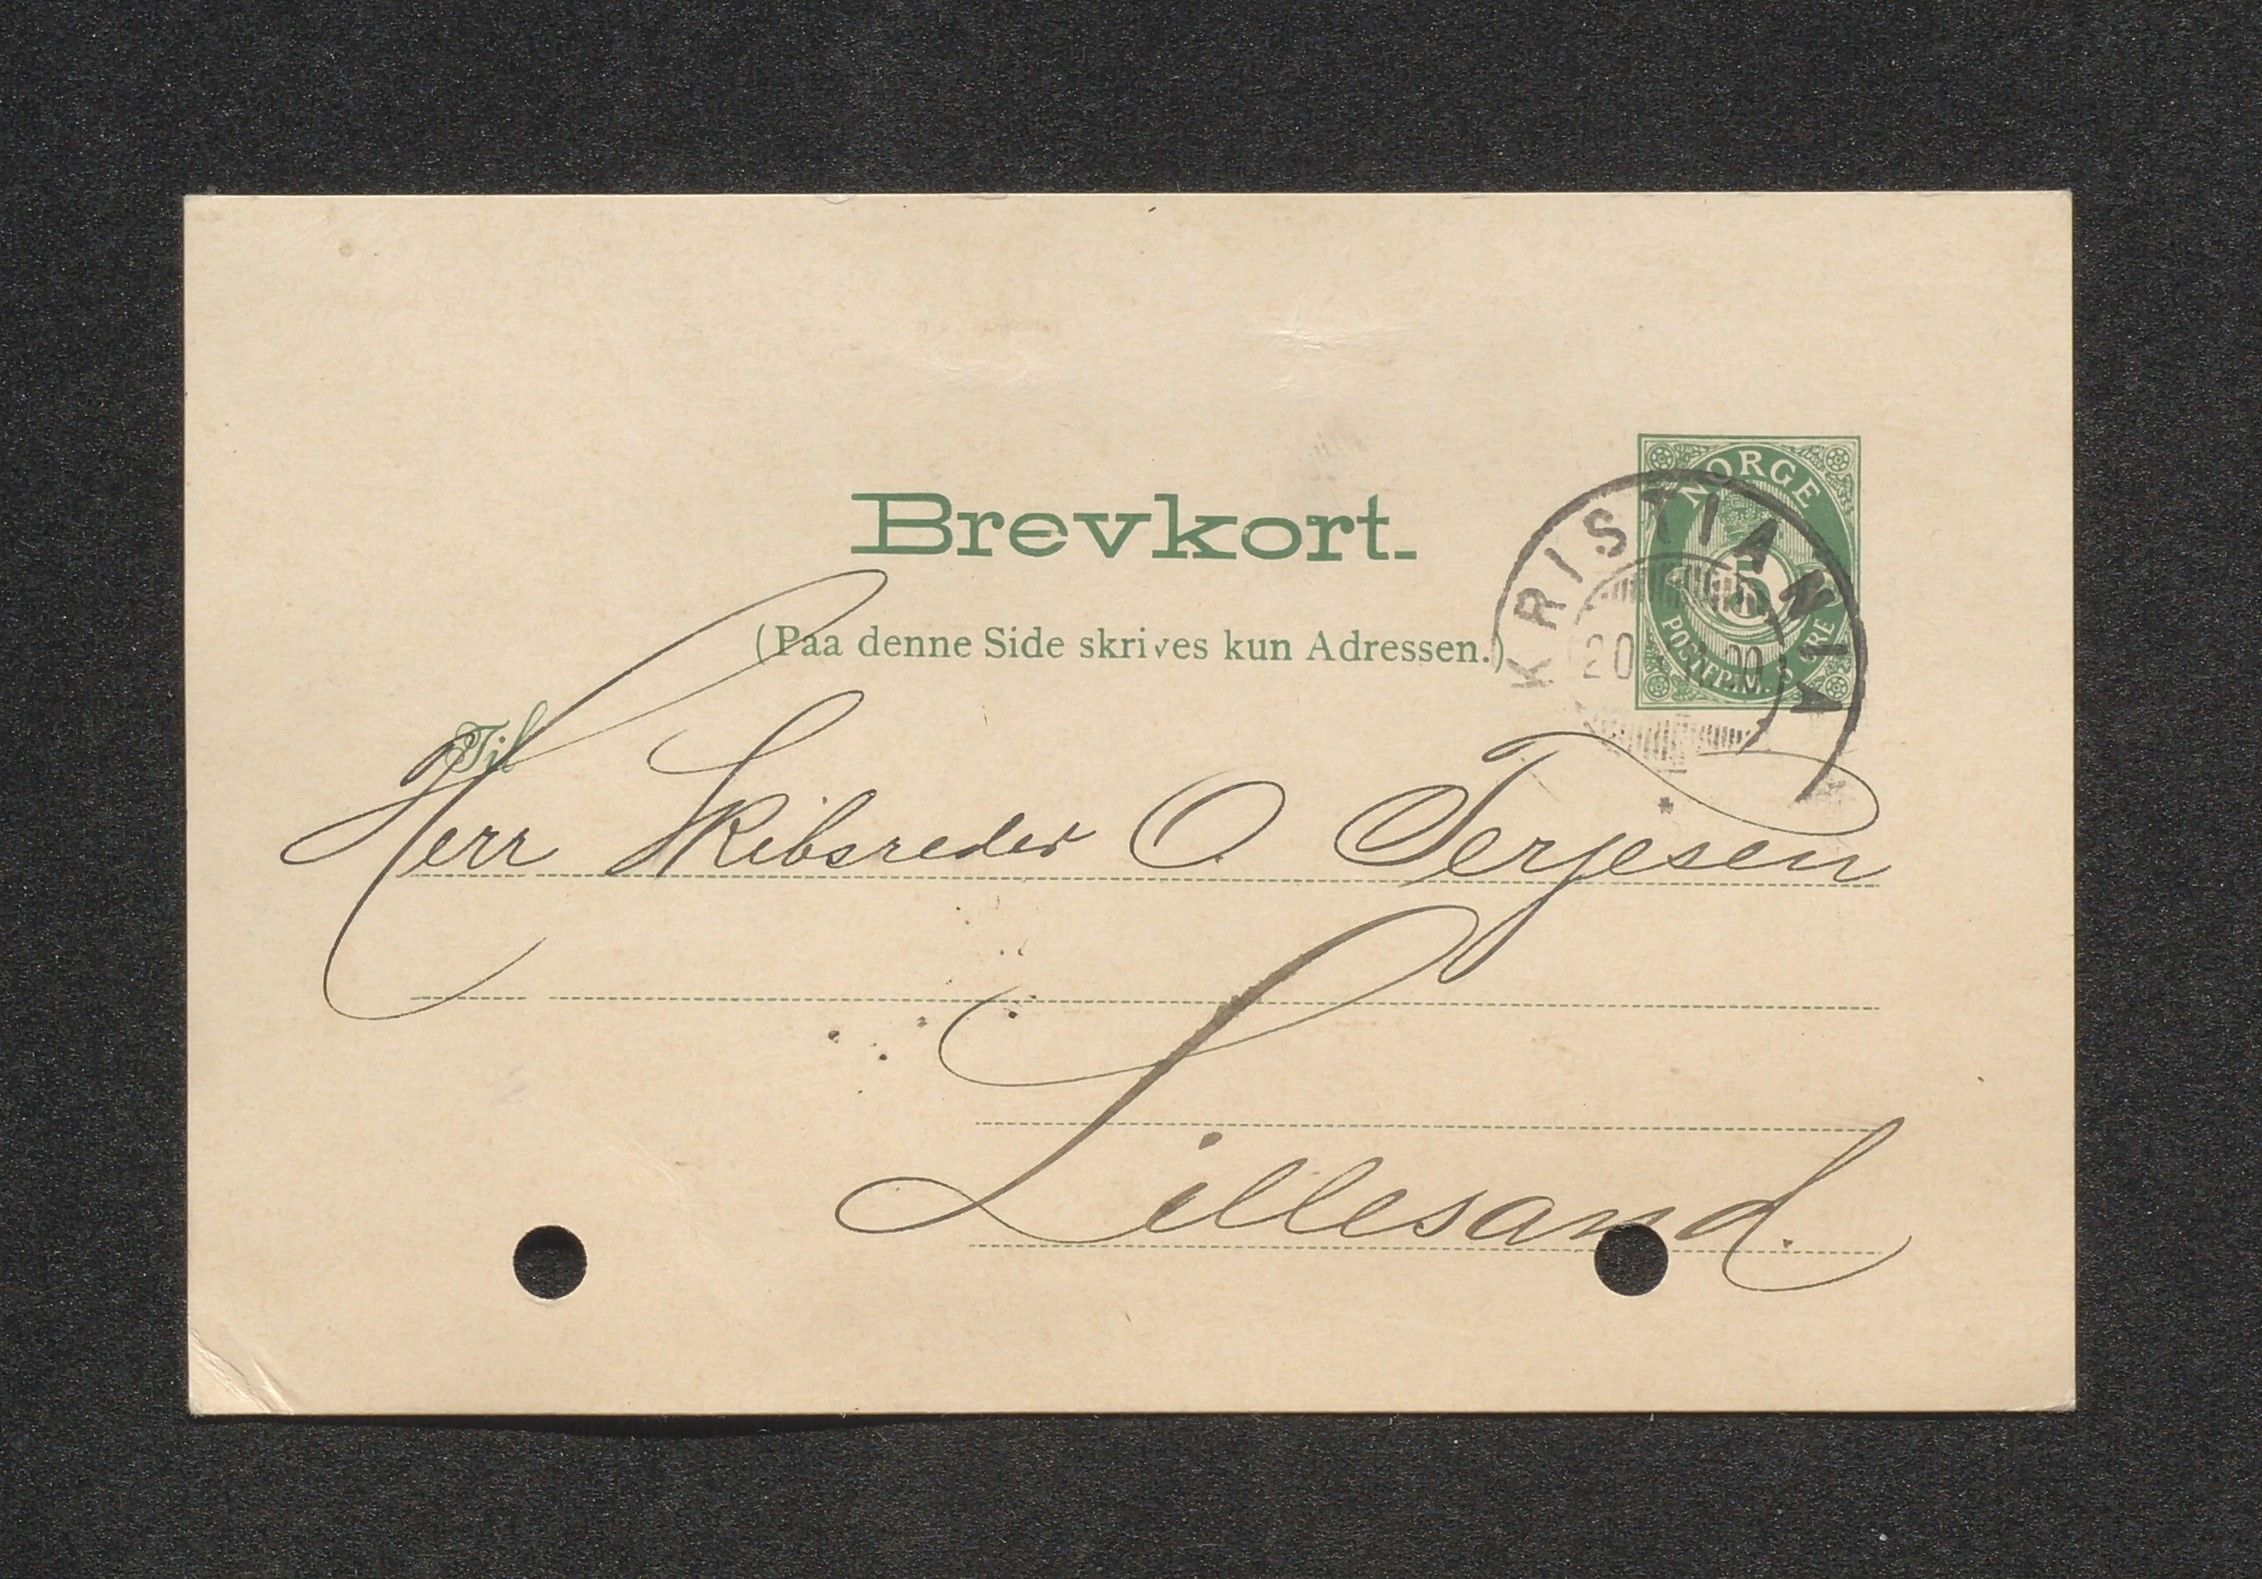 Brevkort.
(Paa denne Side skrives kun Adressen.)
NORGE
5
POSTFRIM. ØRE
KRISTIANIA
20
Til
Herr Skibsreder O. Terjesen
Lillesand.